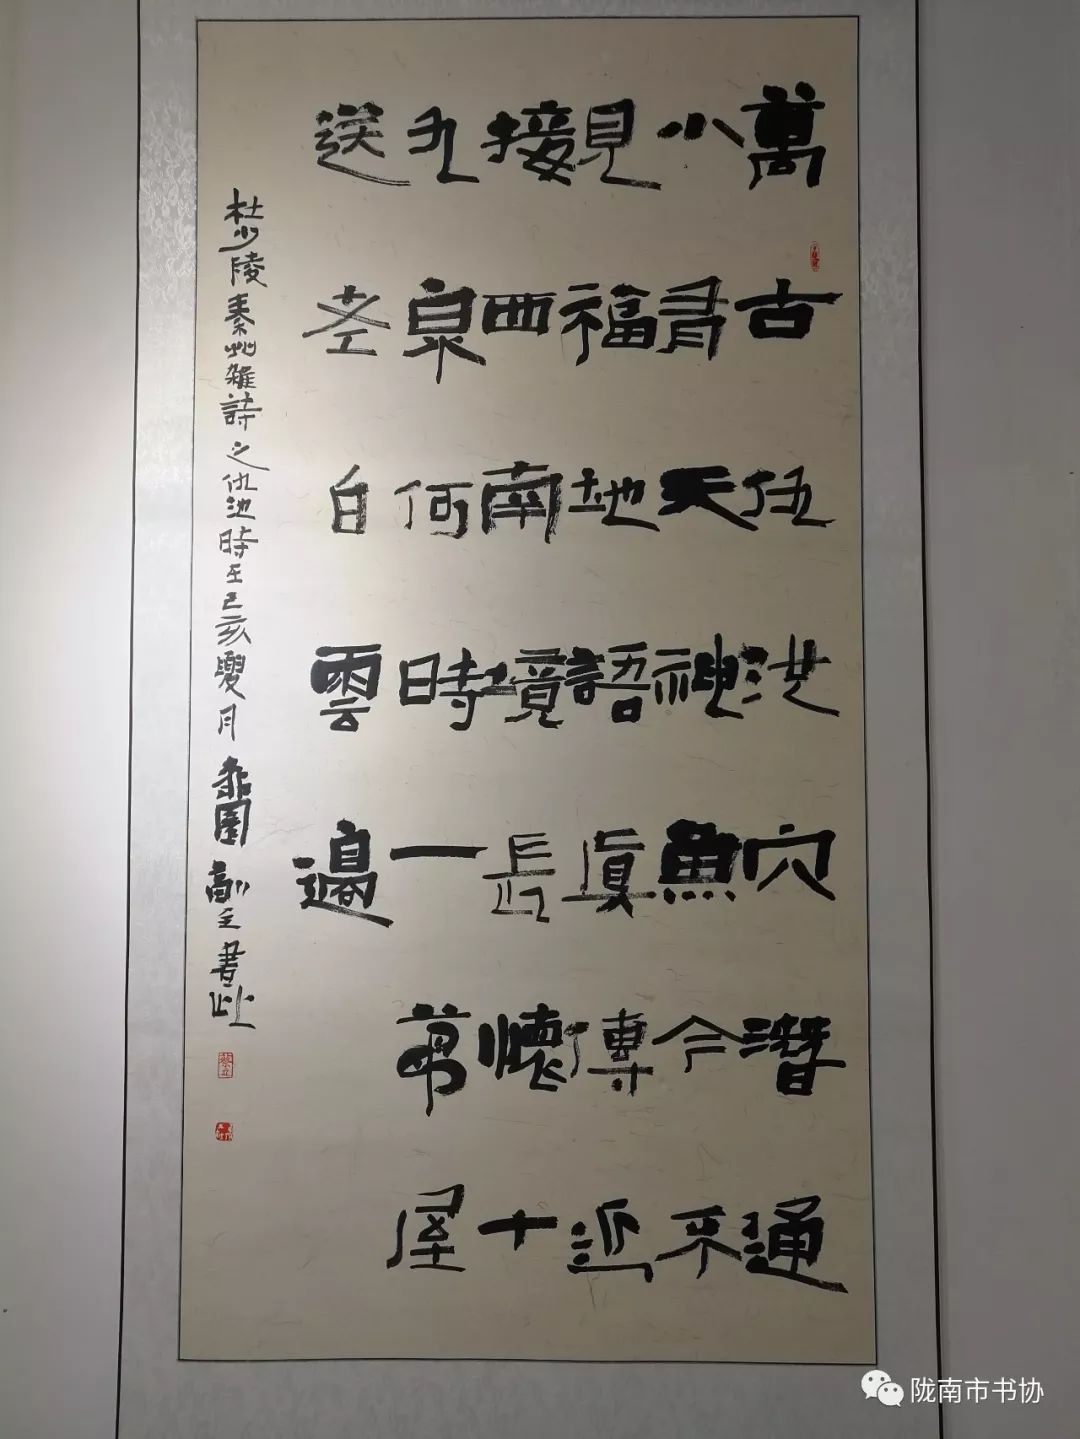 萬古仇池穴潛通
小有天神魚今不
見福地語眞傳近
接西南境長懷十
九泉何時一茅屋
送老白雲邊
杜少陵秦州雜詩之仇池時在己亥夏月 園 書
陇南市书协